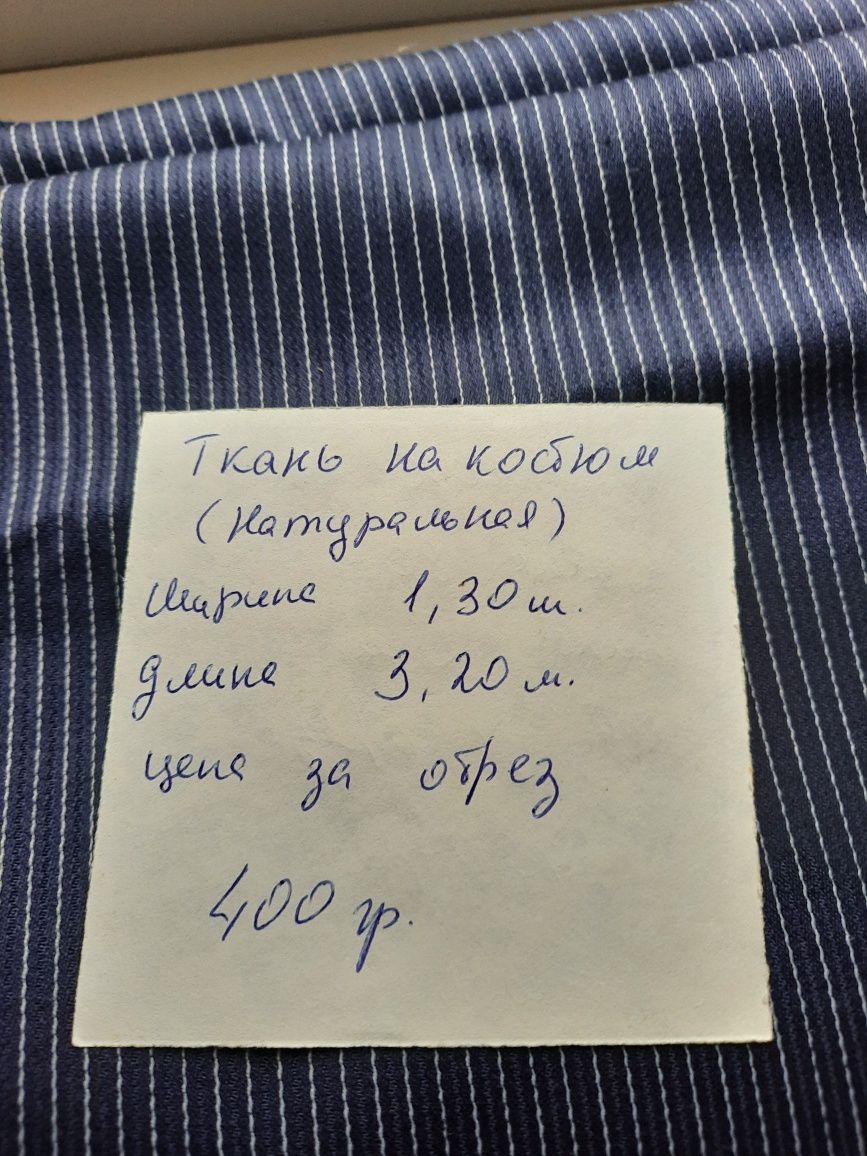 Ткань на костюм
(натуральная)
Ширина 1,30 м.
длина 3,20 м.
цена за отрез
400 гр.